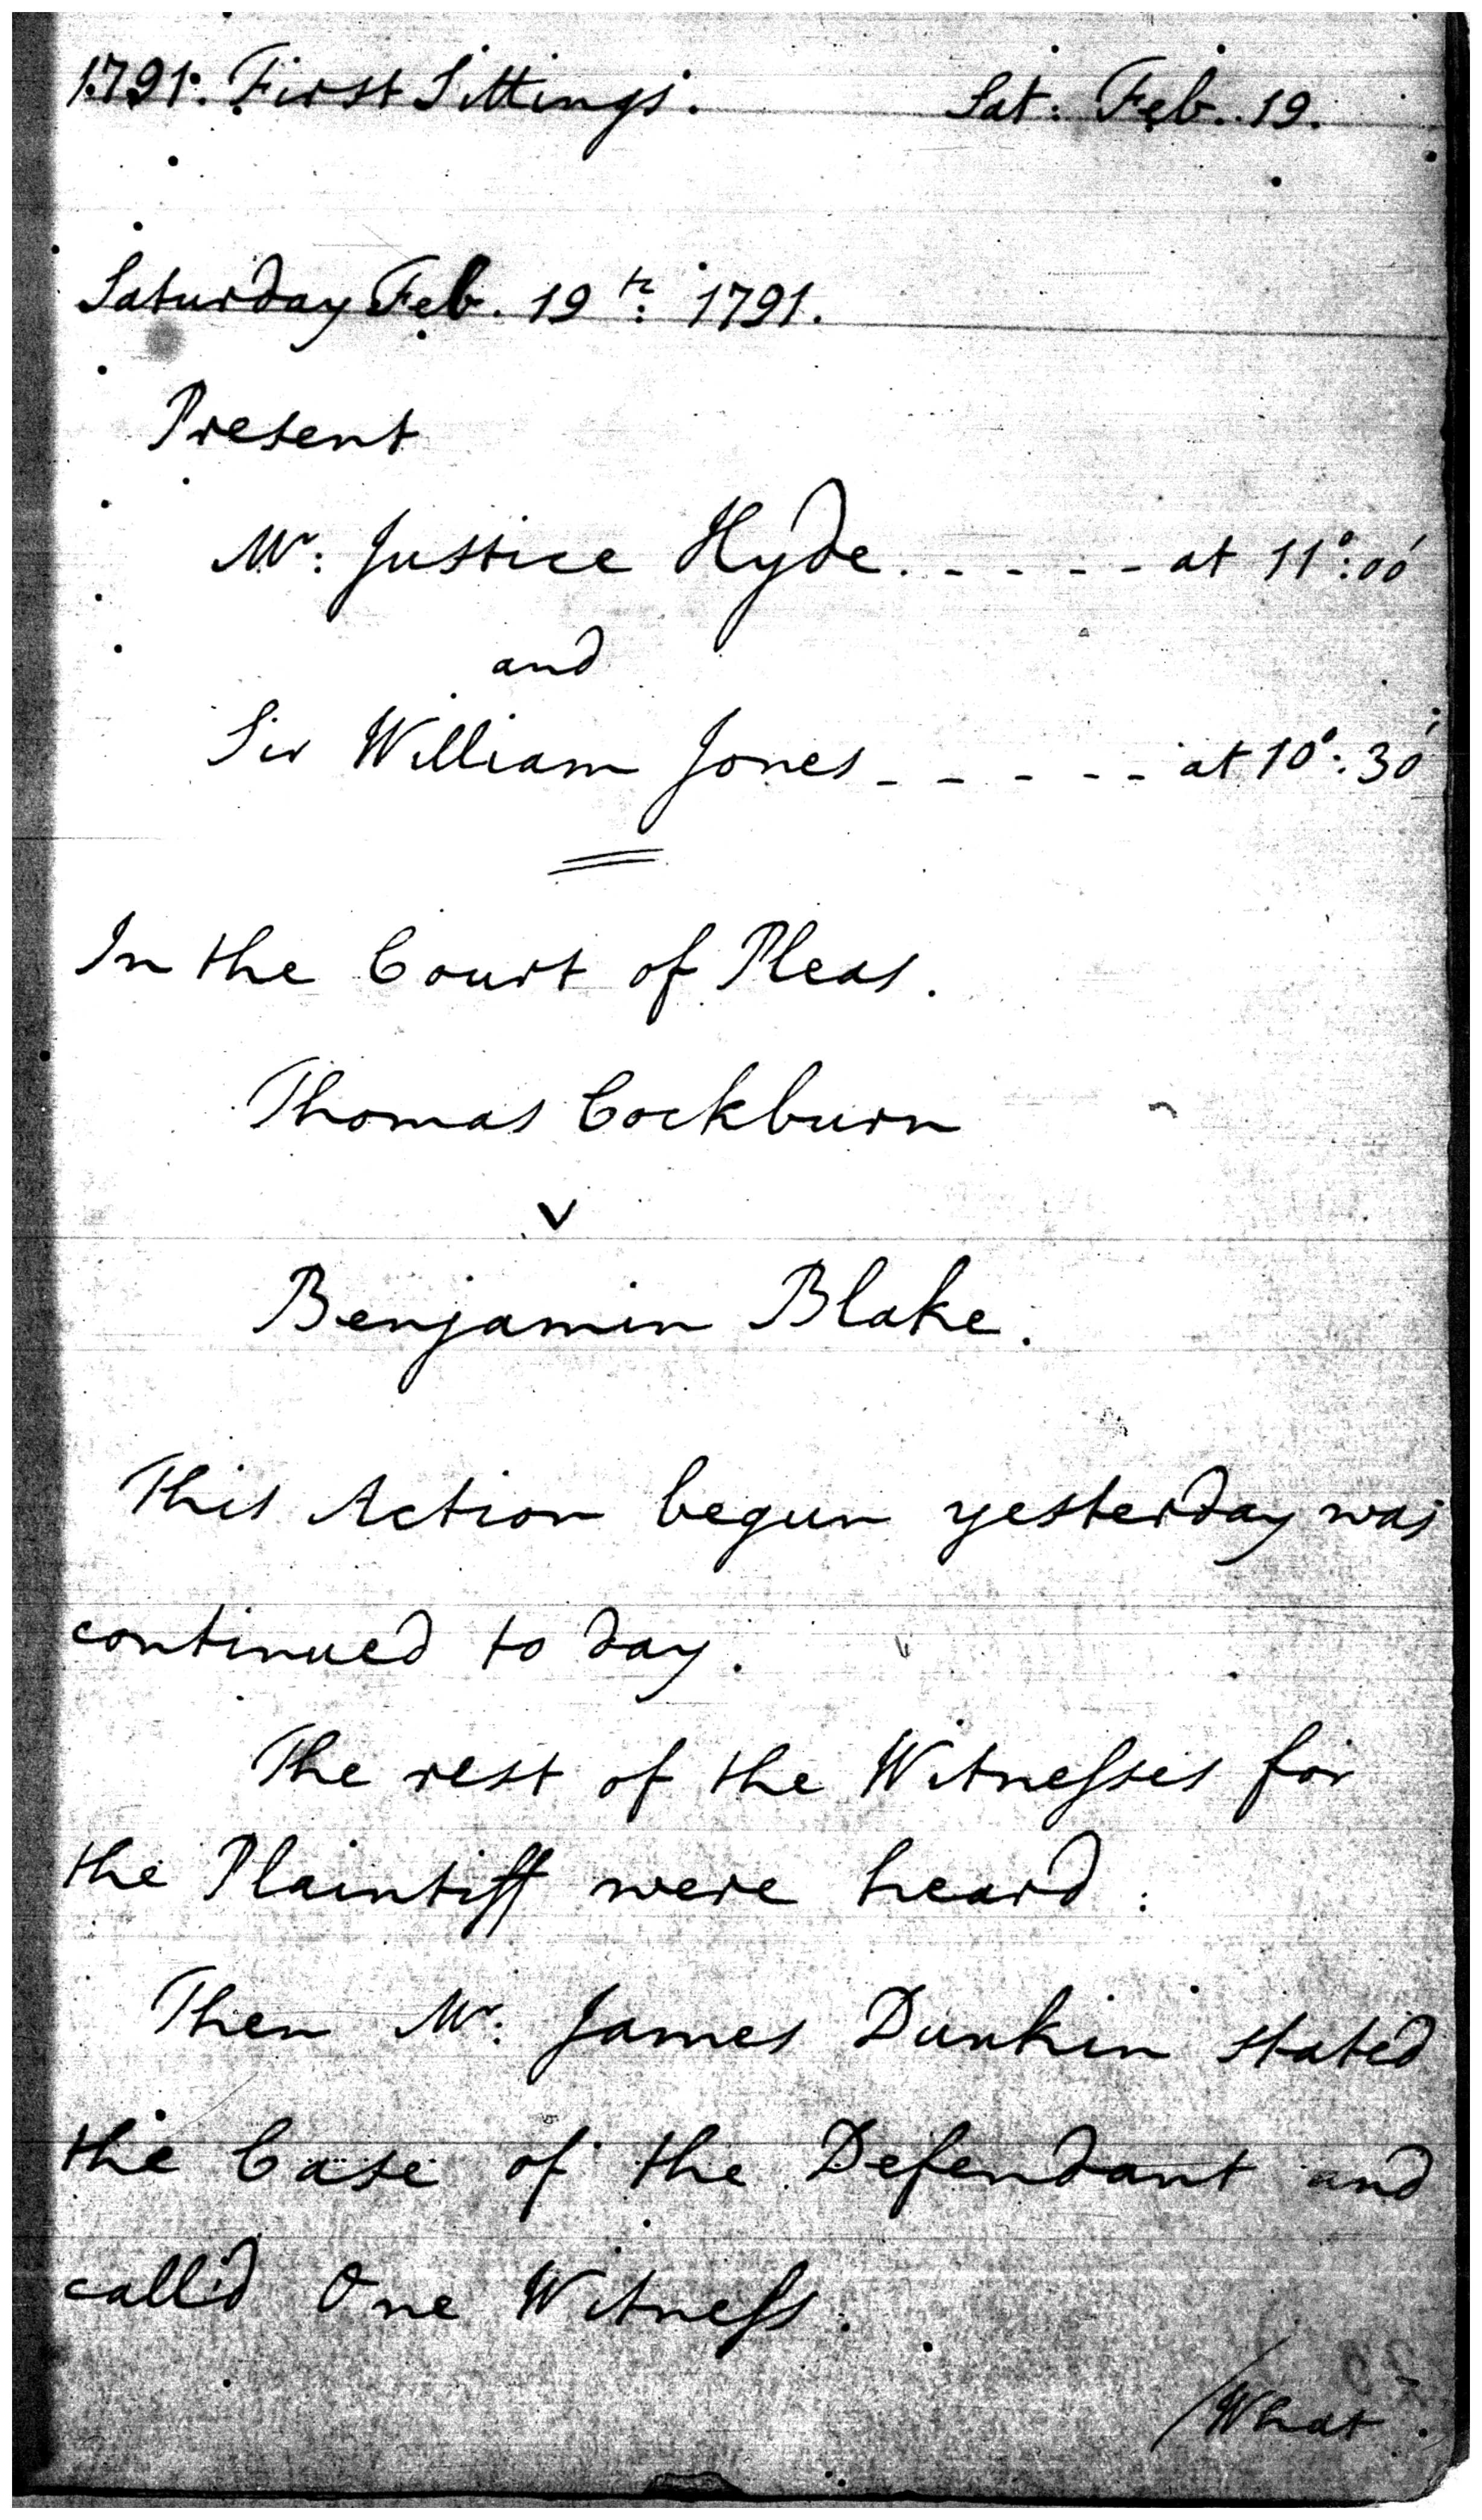 1791. First Sittings. Sat: Feb. 19.
Saturday Feb. 19th: 1791.
Present
Mr: Justice Hyde. - - - - at 11°:00'
and
Sir William Jones - - - - - at 10°:30'
In the Court of Pleas.
Thomas Cockburn
v
Benjamin Blake.
This Action begun yesterday was
continued to day.
The rest of the Witneſses for
the Plaintiff were heard:
Then Mr: James Dunkin stated
the Case of the Defendant and
call'd One Witneſs.
/What